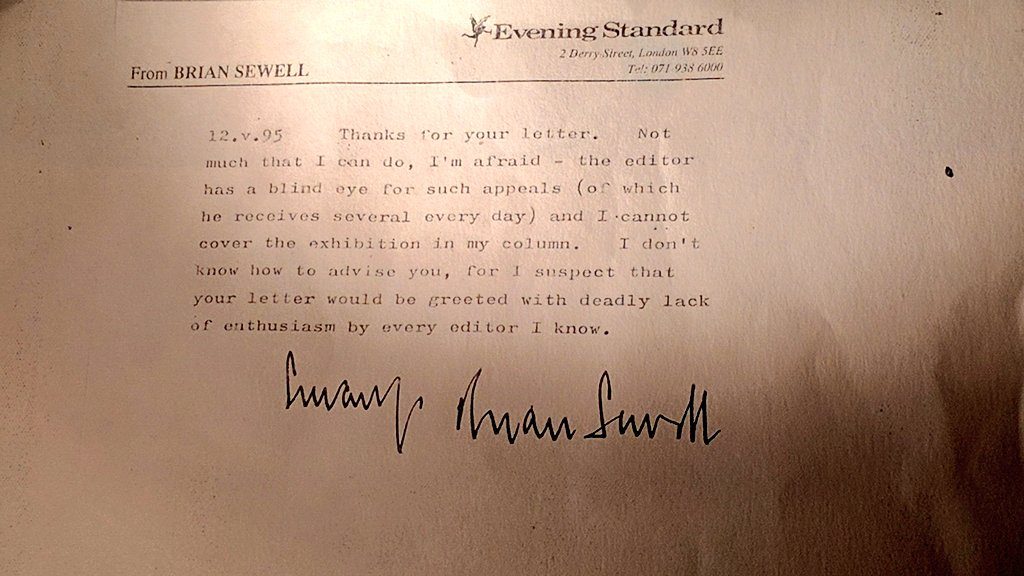 Evening Standard
2 Derry Street, London W8 5EE
Tel: 071 938 6000
From BRIAN SEWELL
12.v.95 Thanks for your letter. Not
much that I can do, I'm afraid - the editor
has a blind eye for such appeals (of which
he receives several every day) and I cannot
cover the exhibition in my column. I don't
know how to advise you, for I suspect that
your letter would be greeted with deadly lack
of enthusiasm by every editor I know.
Brian Sewell